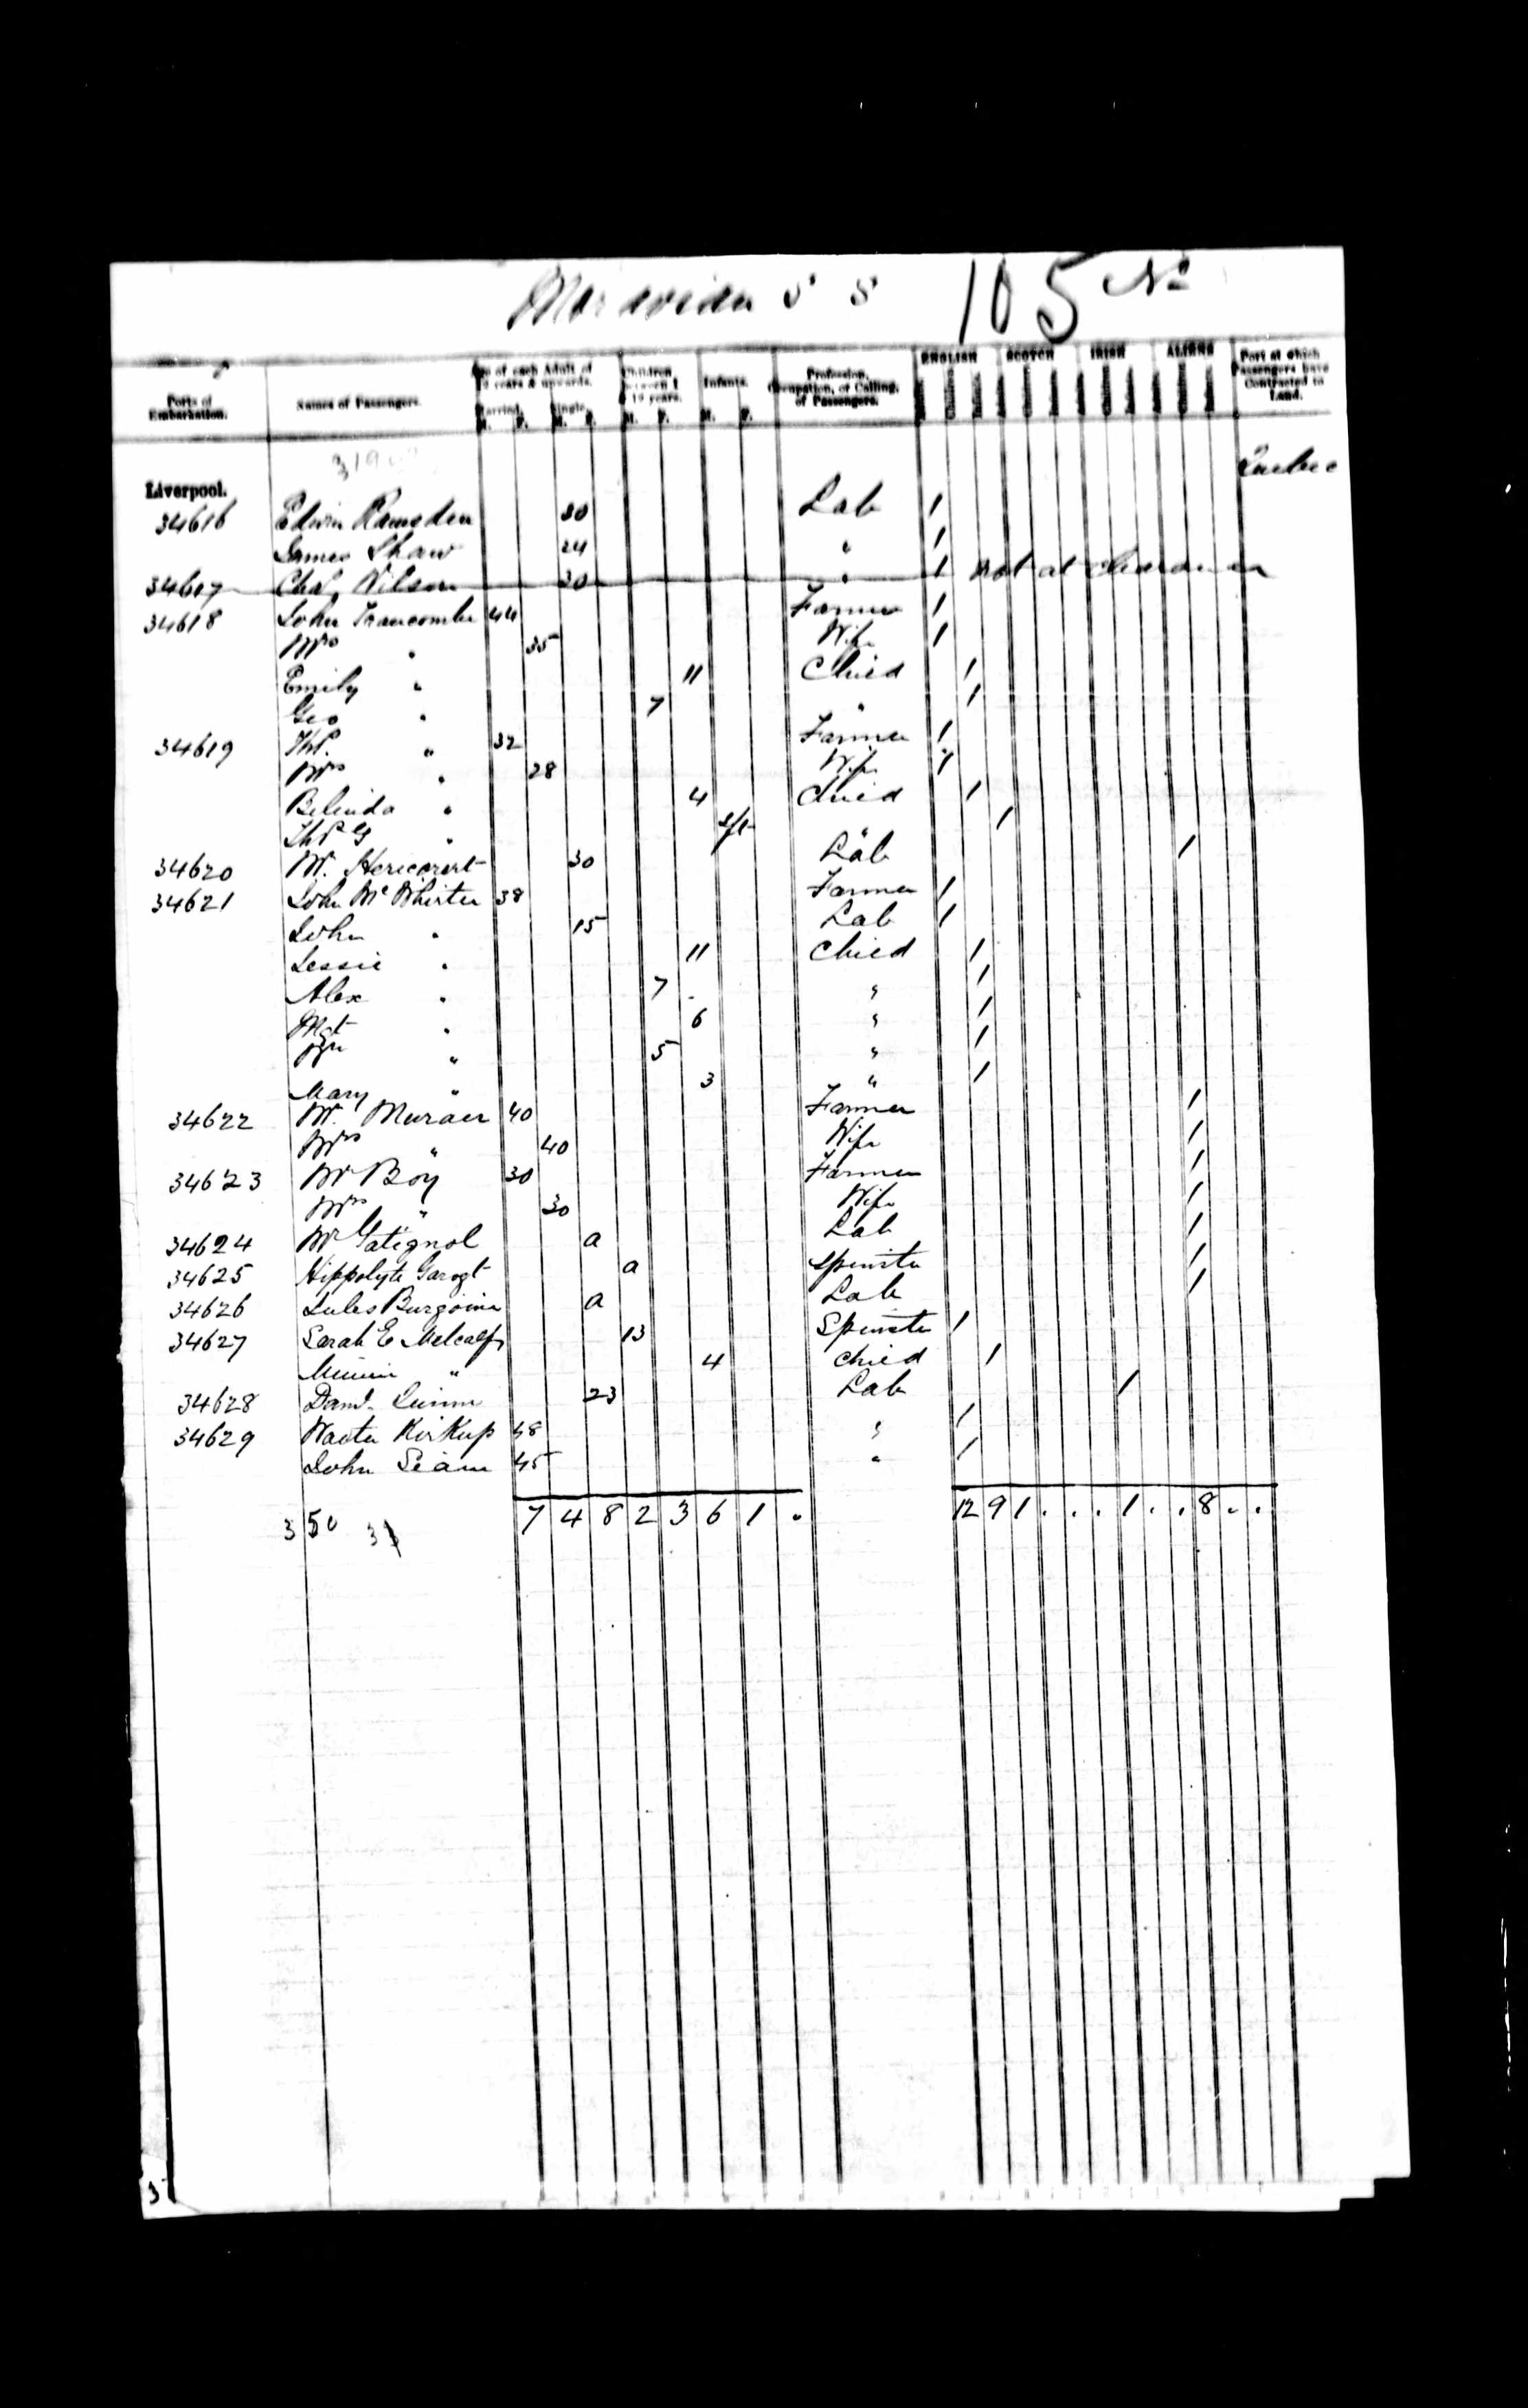 Moravian S S 105 No
Ports of Embarkation.
Names of Passengers.
Age of each Adult of 12 years & upwards.
Married. Single.
M. F. M. F.
Children between 1 & 12 years.
M. F.
Infants.
M. F.
Profession, Occupation, or Calling, of Passengers.
ENGLISH SCOTCH IRISH ALIENS
Port at which Passengers have Contracted to Land.
Quebec
Liverpool.
34616 Edwin Ramsden 30 Lab 1
James Shaw 24 " 1
34617 Chas Wilson 30 " 1 not at clearance
34618 John Francombe 44 Farmer 1
Mrs " 35 Wife 1
Emily " 11 Child 1
Geo " 7 " 1
34619 Thos. " 32 Farmer 1
Mrs " 28 Wife 1
Belinda " 4 Child 1
Thos G " Inft " 1
34620 M. Hericourt 30 Lab 1
34621 John McWhirter 38 Farmer 1
John " 15 Lab 1
Jessie " 11 Child 1
Alex " 7 " 1
Mgt " 6 " 1
Wm " 5 " 1
Mary " 3 " 1
34622 M. Muraer 40 Farmer 1
Mrs " 40 Wife 1
34623 Mr Boy 30 Farmer 1
Mrs " 30 Wife 1
34624 Mr Gatignol a Lab 1
34625 Hippolyte a Spinster 1
34626 Jules Burgoine a Lab 1
34627 Sarah E Metcalf 13 Spinster 1
Minnie " 4 Child 1
34628 Danl. Quinn 23 Lab 1
34629 Walter Kirkup 48 " 1
John 45 " 1
350 31 7 4 8 2 3 6 1 . 12 9 1 . . . 1 . . 8 . .